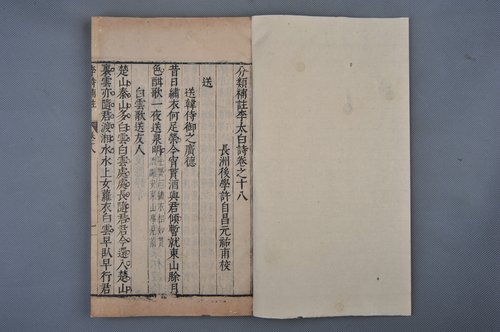 分類補註李太白詩卷之十八
長洲後學許自昌元祐甫校
送
送韓侍御之廣德
昔日繡衣何足榮今宵貰酒與君傾暫就東山賒月
色酣歌一夜送泉明
白雲歌送友人
楚山秦山多白雲白雲處處長隨君君今還入楚山
裏雲亦隨君渡湘水水上女蘿衣白雲早臥早行君